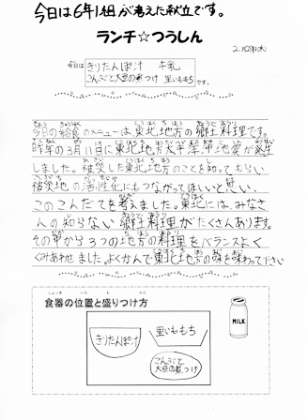 今日は6年1組が考えた献立です。
ランチ☆つうしん
今日は きりたんぽ汁 牛乳
です。
今日の給食のメニューは東北地方の郷土料理です。
昨年の3月11日に東北地方太平洋沖地震が発生
しました。被災した東北地方のことを知ってもらい
被災地の活性化にもつながってほしいと思い、
このこんだてを考えました。東北には、みなさ
んの知らない郷土料理がたくさんあります。
その中から3つの地方の料理をバランスよく
くみあわせました。よくかんで東北地方の味を味わって下さい
食器の位置と盛りつけ方
きりたんぽ汁
里いももち
MILK